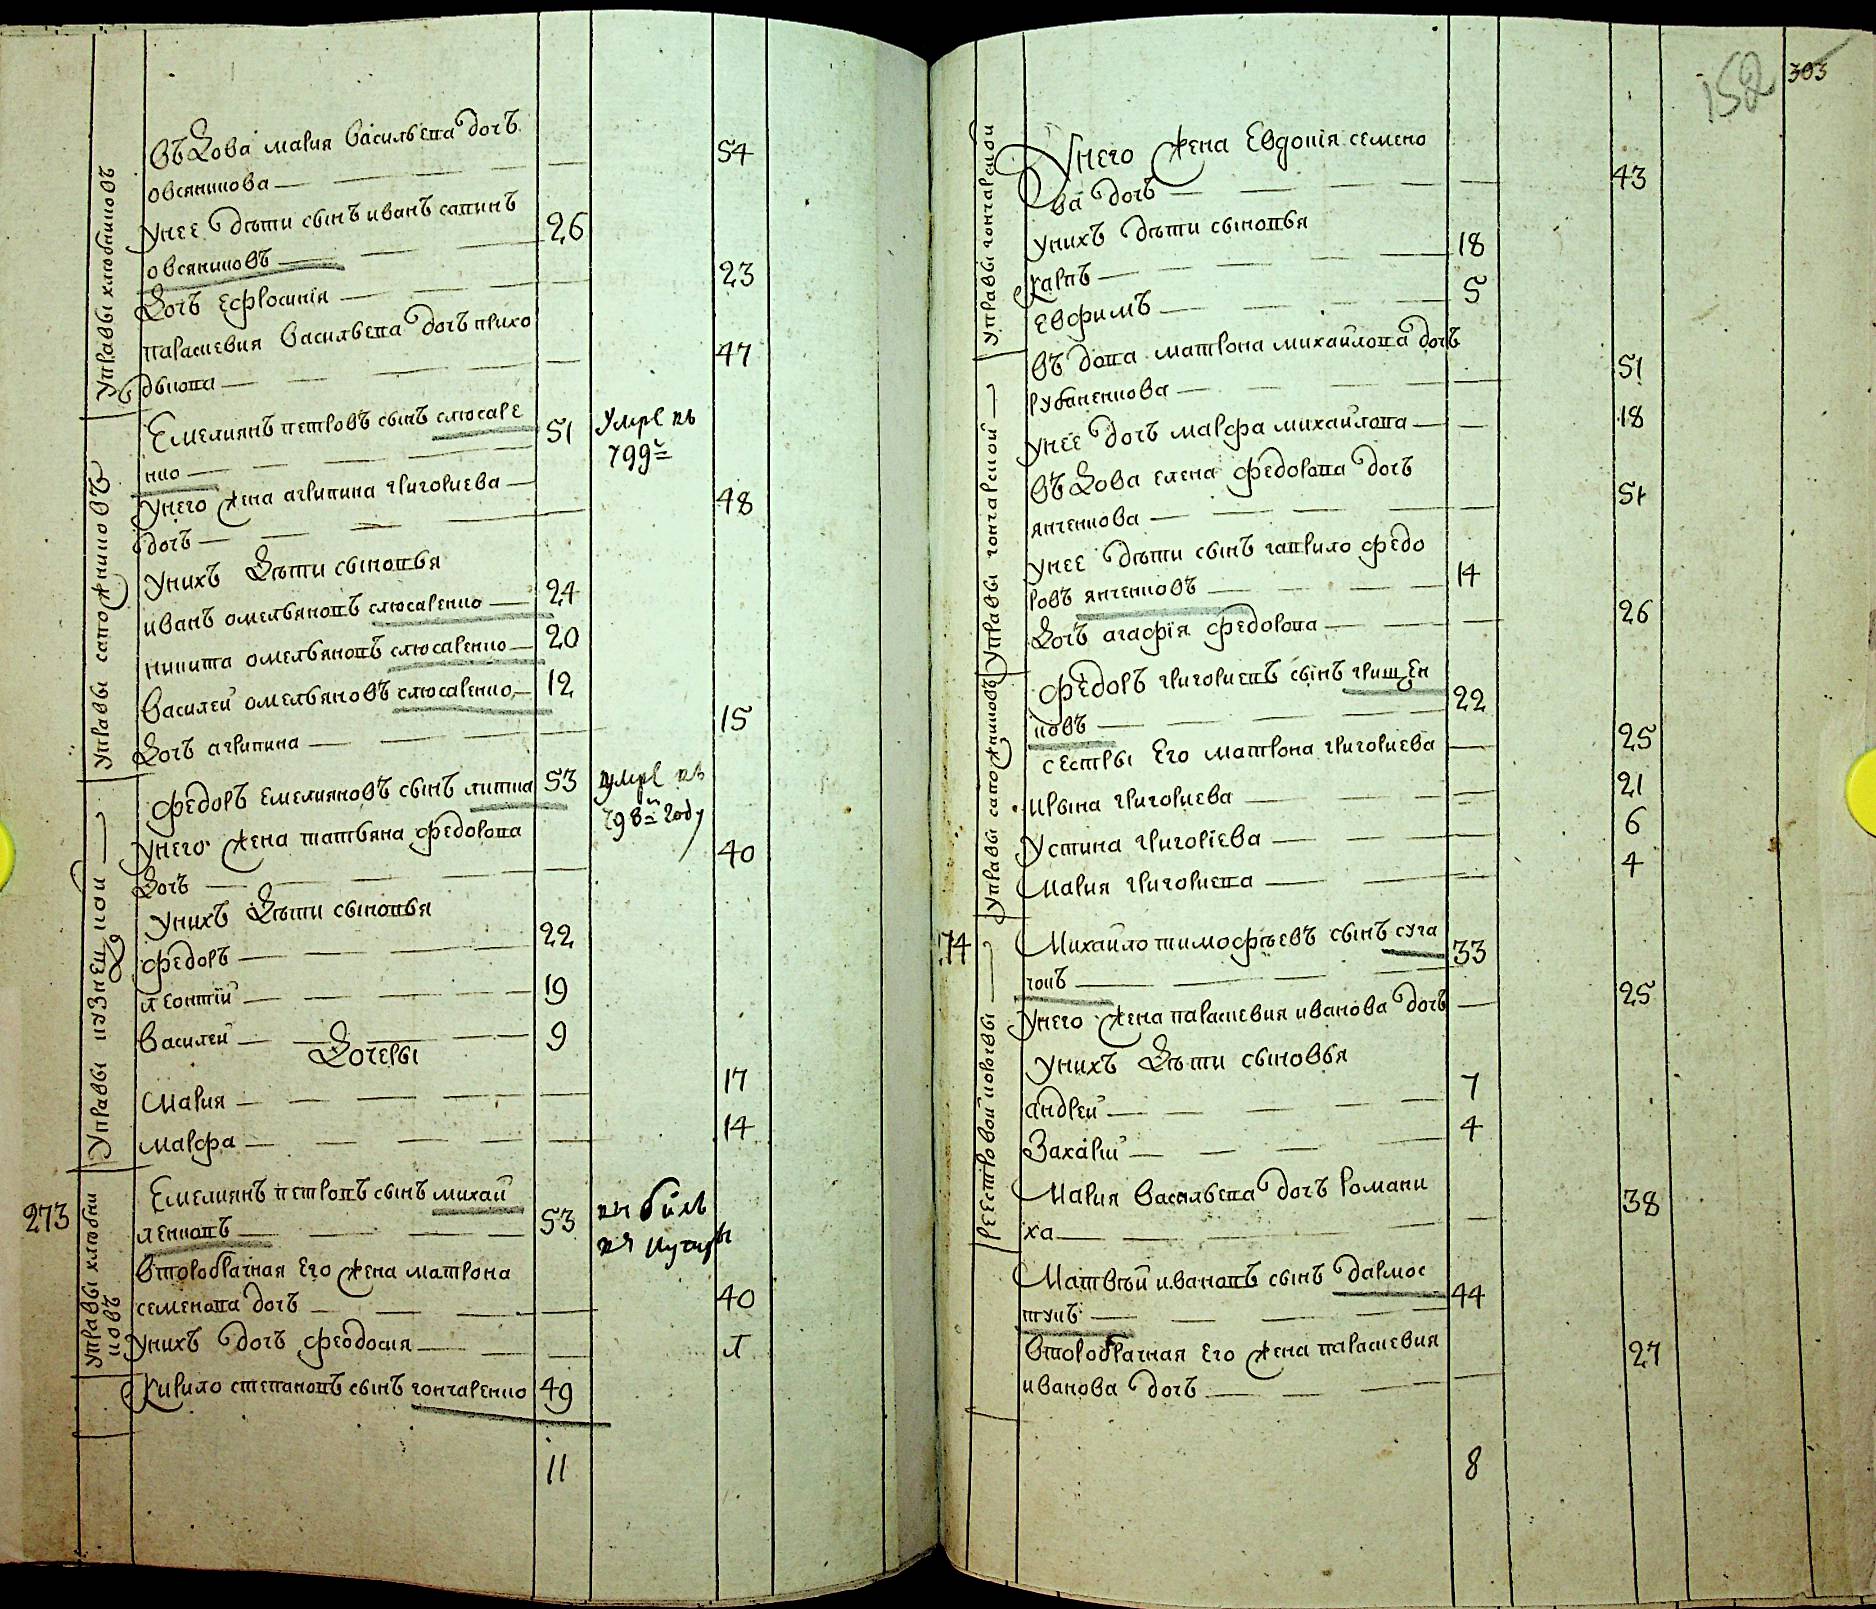 управы хлѣбниковъ
въдова мария васильева дочь
овсяникова 54
унее дѣти сынъ иванъ сапинъ
овсяниковъ 26
дочь ефросиния 23
параскевия васильева дочь прихо
дькова 47
управы сапожниковъ
Емелиянъ петровъ сынъ слюсаре
нко 51 умре въ
799м
унего жена агрипина григориева
дочь 48
унихъ дѣти сыновья
иванъ омельяновъ слюсаренко 24
никита омельяновъ слюсаренко 20
василей омельяновъ слюсаренко 12
дочь агрипина 15
управы кузнецкой
федоръ емелияновъ сынъ литка 53 умре въ
798м году
унего жена татьяна федорова
дочь 40
унихъ дѣти сыновья
федоръ 22
леонтій 19
василей 9
дочеры
мария 17
марфа 14
273
управы хлѣбни
ковъ
Емелиянъ петровъ сынъ михай
ленковъ 53
второбрачная его жена матрона
семенова дочь 40
унихъ дочь феодосия
кирило степановъ сынъ гончаренко 49
11
152 303
управы гончарской
унего жена Евдокія семено
ва дочь 43
унихъ дѣти сыновья
карпъ 18
евфимъ 5
управы гончарской
въдова матрона михайлова дочь
рубаненкова 51
унее дочь марфа михайлова 18
въдова елена федорова дочь
янченкова 51
унее дѣти сынъ гаврило федо
ровъ янченковъ 14
дочь агафія федорова 26
управы сапожниковъ
федоръ григориевъ сынъ грищен
ковъ 22
сестры его матрона григориева 25
ирына григориева 21
устина григоріева 6
мария григориева 4
174
реестровой короевы
михайло тимофѣевъ сынъ суга
чокъ 33
унего жена параскевия иванова дочь 25
унихъ дѣти сыновья
андрей 7
захарій 4
мария васильева дочь романи
ха 38
матвѣй ивановъ сынъ дармос
тукъ 44
второбрачная его жена параскевия
иванова дочь 27
8